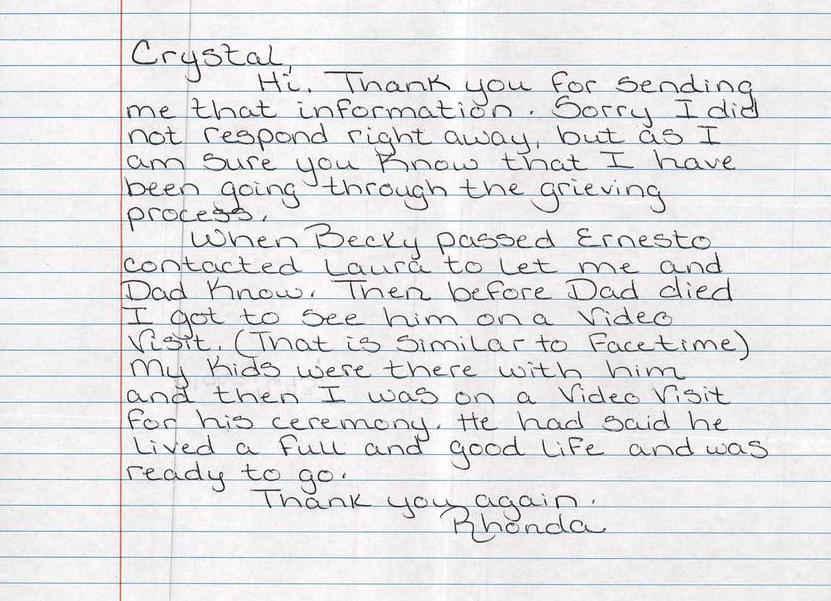 Crystal,
Hi. Thank you for sending
me that information. Sorry I did
not respond right away, but as I
am sure you know that I have
been going through the grieving
process.
When Becky passed Ernesto
contacted Laura to let me and
Dad know. Then before Dad died
I got to see him on a video
visit. (That is similar to Facetime)
My kids were there with him
and then I was on a video visit
for his ceremony. He had said he
lived a full and good life and was
ready to go.
Thank you again.
Rhonda